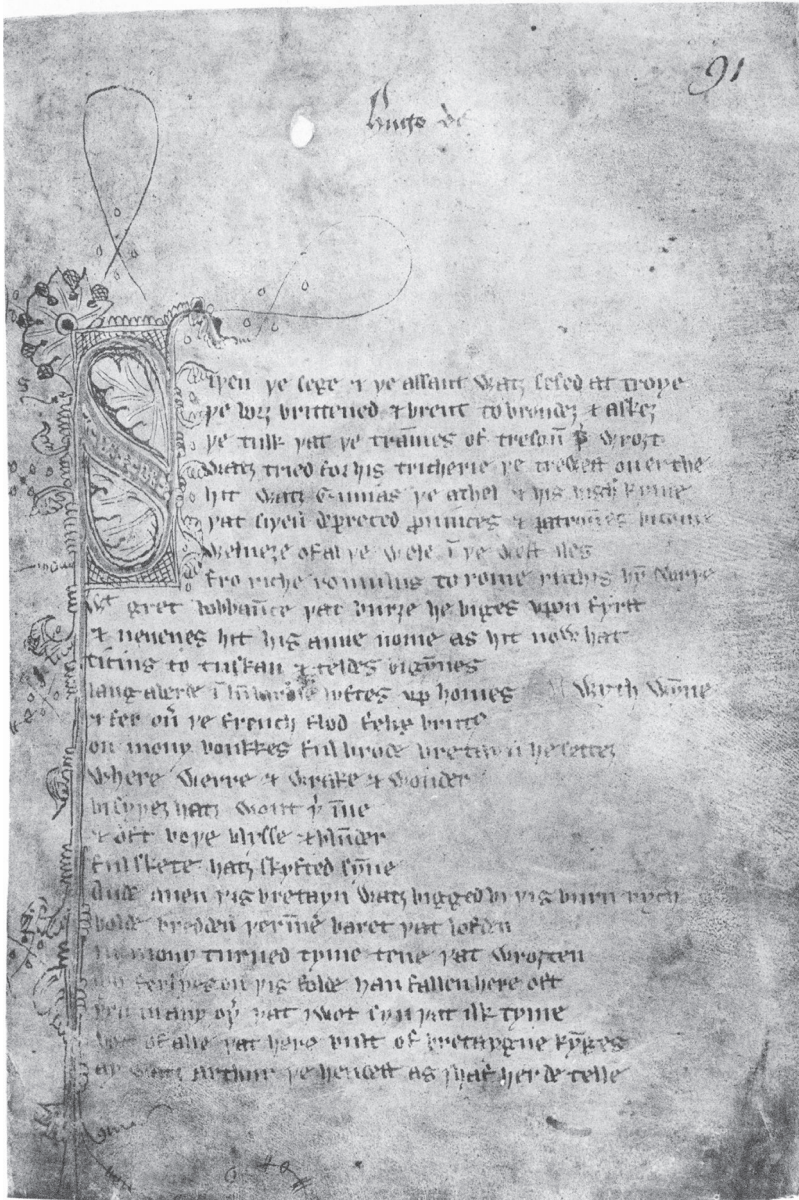 91
Hugo de
Siþen þe sege & þe assaut watȝ sesed at troye
þe borȝ brittened & brent to brondeȝ & askeȝ
þe tulk þat þe tram̄es of tresoū þ̵ wroȝt
watȝ tried for his tricherie þe trewest on erthe
hit watȝ Ennias þe athel & his highe kynde
þat siþen depreced ꝓuinces & patroūes bicome
welneȝe of al þe wele ī þe west iles
fro riche romulus to rome ricchis hȳ swyþe
wᵗ gret bobbaūce þat burȝe he biges vpon fyrst
& neuenes hit his aune nome as hit now hat
ticius to tuskan & teldes bigȳnes
langaberde ī lumbardie lyftes vp homes wyth wȳne
& fer oū þe french flod felix brutꝰ
on mony bonkkes ful brode bretayn he setteȝ
where werre & wrake & wonder
bi syþeȝ hatȝ wont þ̓ īne
& oft boþe blysse & blūder
ful skete hatȝ skyfted sȳne
Ande quen þis bretayn watȝ bigged bi þis burn rych
bolde bredden þerīne baret þat lofden
in mony turned tyme tene þat wroȝten
mo ferlyes on þis folde han fallen here oft
þen in any oþ̓ þat I wot syn þat ilk tyme
bot of alle þat here bult of bretaygne kȳges
ay watȝ arthur þe hendest as I haf herde telle